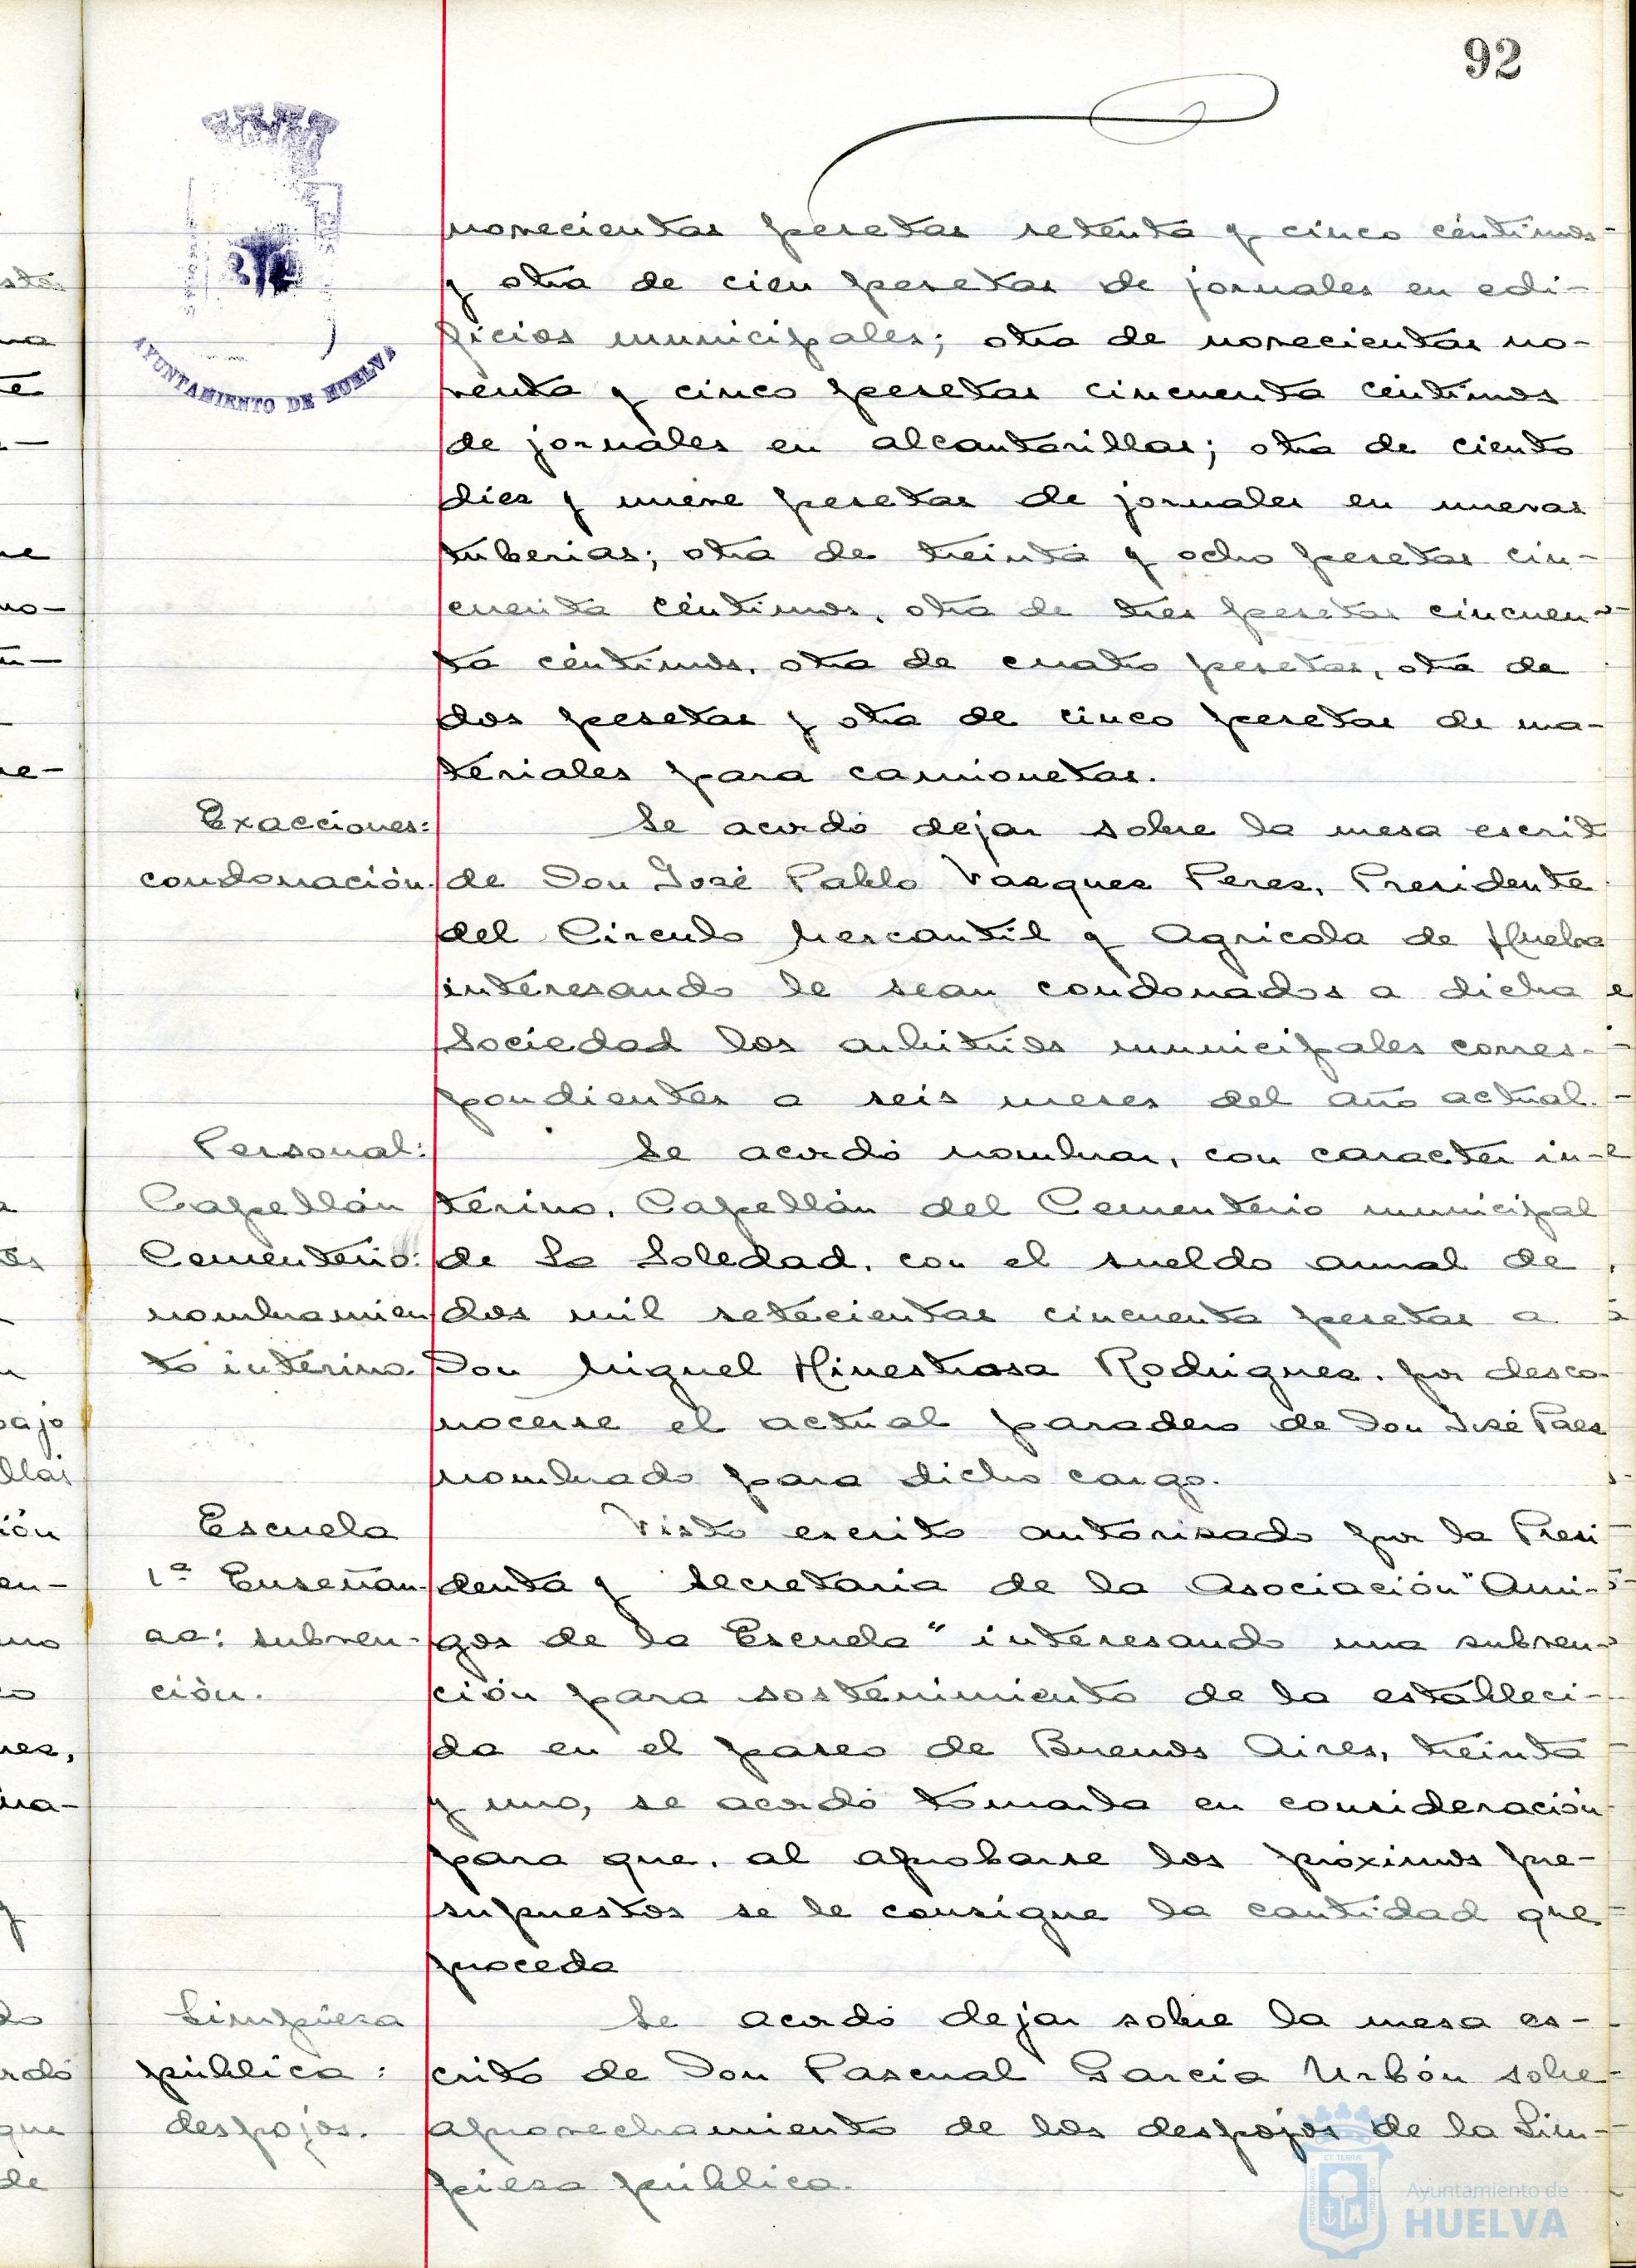 92
AYUNTAMIENTO DE HUELVA
novecientas pesetas setenta y cinco céntimos
y otra de cien pesetas de jornales en edi-
ficios municipales; otra de novecientas no-
venta y cinco pesetas cincuenta céntimos
de jornales en alcantarillas; otra de ciento
diez y nueve pesetas de jornales en nuevas
tuberias; otra de treinta y ocho pesetas cin-
cuenta céntimos, otra de tres pesetas cincuen-
ta céntimos, otra de cuatro pesetas, otra de
dos pesetas y otra de cinco pesetas de ma-
teriales para camionetas.
Exacciones:
condonación.
Se acordó dejar sobre la mesa escrito
de Don José Pablo Vazquez Perez, Presidente
del Circulo Mercantil y Agricola de Huelva
interesando le sean condonados a dicha
Sociedad los arbitrios municipales corres-
pondientes a seis meses del año actual.
Personal:
Capellán
Cementerio:
nombramien
to interino.
Se acordó nombrar, con caracter in-
terino, Capellán del Cementerio municipal
de La Soledad, con el sueldo anual de
dos mil setecientas cincuenta pesetas a
Don Miguel Hinestrosa Rodriguez, por desco-
nocerse el actual paradero de Don José Paez
nombrado para dicho cargo.
Escuela
1ª Enseñan-
za: subven-
ción.
Visto escrito autorizado por la Presi
denta y Secretaria de la Asociación "Ami-
gos de la Escuela" interesando una subven-
ción para sostenimiento de la estableci-
da en el paseo de Buenos Aires, treinta
y uno, se acordó tomarla en consideración
para que, al aprobarse los próximos pre-
supuestos se le consigne la cantidad que
proceda
Limpieza
pública:
despojos.
Se acordó dejar sobre la mesa es-
crito de Don Pascual Garcia Urbón sobre
aprovechamiento de los despojos de la Lim-
pieza pública.
Ayuntamiento de
HUELVA